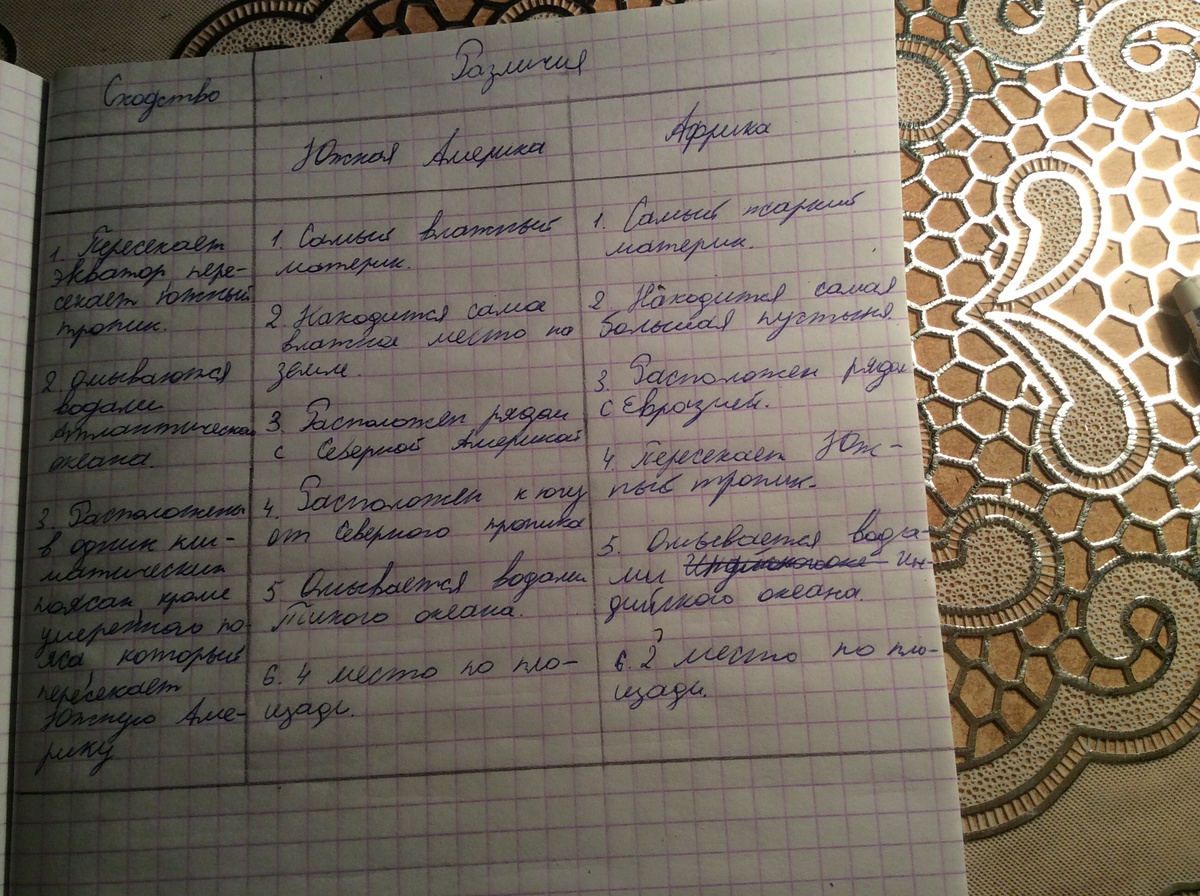 Сходство
Различия
Южная Америка
Африка
1. Пересекает
экватор, пере-
секает южный
тропик.
2 омываются
водами
Атлантическа
океана.
3. Расположены
в одних кли-
матических
поясах, кроме
умеренного по-
яса который
пересекает
Южную Аме-
рику
1. Самый влажный
материк.
2. Находится сама
влажная место на
земле.
3. Расположен рядом
с Северной Америкой
4. Расположен к югу
от Северного тропика
5 Омывается водами
Тихого океана.
6. 4 место по пло-
щади.
1. Самый жаркий
материк.
2. Находится самая
большая пустыня
3. Расположен рядом
с Евразией.
4. Пересекает Юж-
ный тропик.
5. Омывается вода-
ми Ин-
дийского океана.
6. 2 место по пло-
щади.